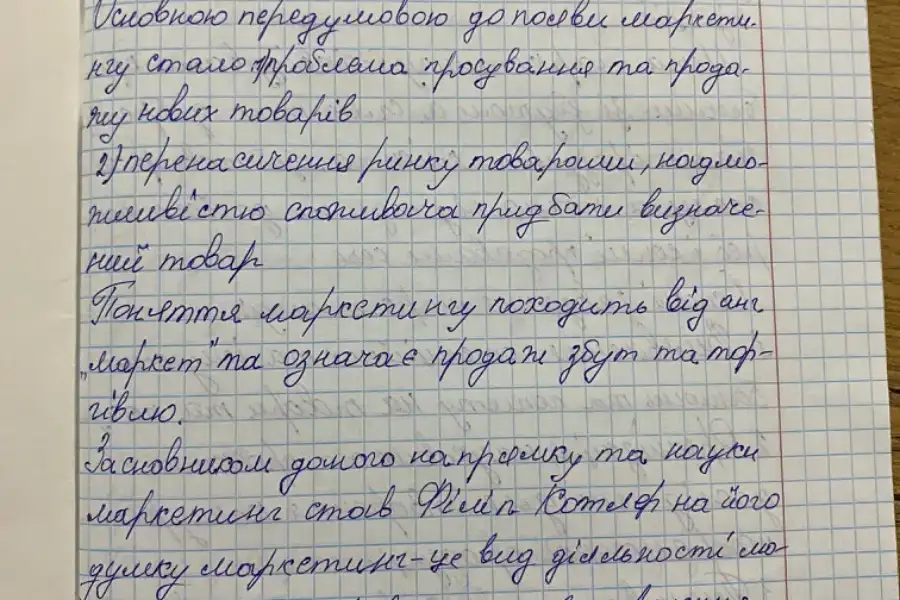 Основною передумовою до появи маркети-
нгу стало проблема просування та прода-
жу нових товарів
2) перенасичення ринку товарами, надмо-
жливістю споживача придбати визначе-
ний товар
Поняття маркетингу походить від анг
„маркет" та означає продаж збут та тор-
гівлю.
Засновником даного напрямку та науки
маркетинг став Філіп Котлер на його
думку маркетинг - це вид діяльності лю-